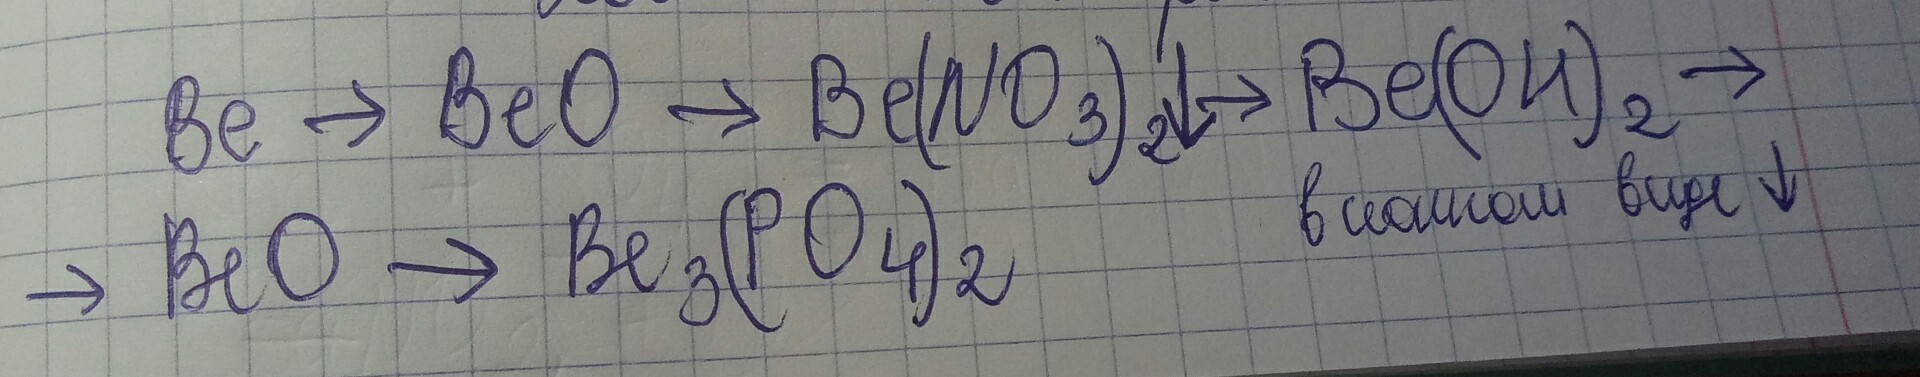 Be → BeO → Be(NO₃)₂↓→ Be(OH)₂ →
в ионном виде ↓
→ BeO → Be₃(PO₄)₂